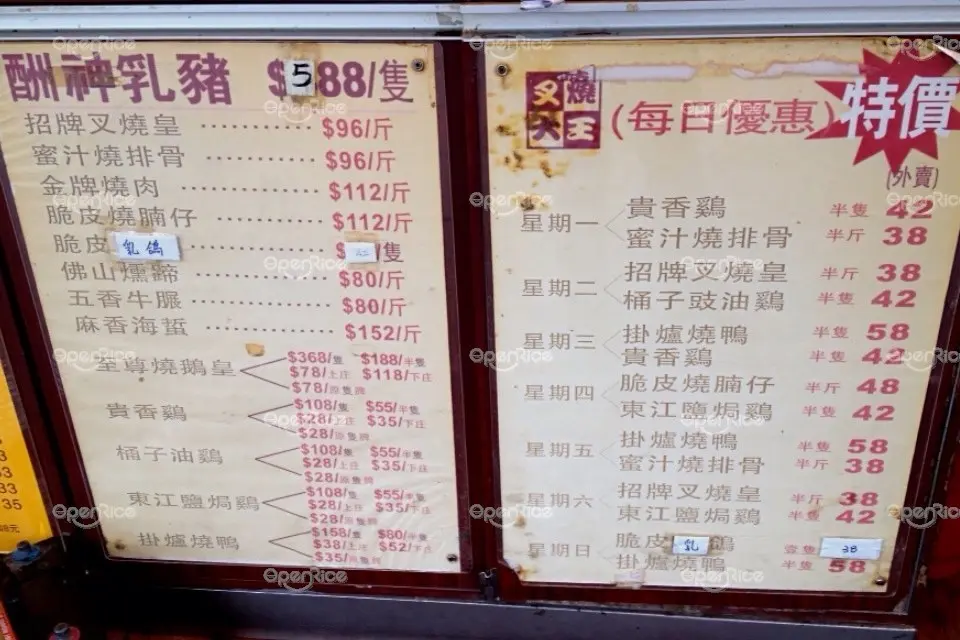 酬神乳豬 $588/隻
招牌叉燒皇 $96/斤
蜜汁燒排骨 $96/斤
金牌燒肉 $112/斤
脆皮燒腩仔 $112/斤
脆皮乳鴿 $ /隻
佛山燻蹄 $80/斤
五香牛𦟌 $80/斤
麻香海蜇 $152/斤
至尊燒鵝皇 $368/隻 $188/半隻
$78/上庄 $118/下庄
$78/原隻髀
貴香鷄 $108/隻 $55/半隻
$28/上庄 $35/下庄
$28/原隻髀
桶子油鷄 $108/隻 $55/半隻
$28/上庄 $35/下庄
$28/原隻髀
東江鹽焗鷄 $108/隻 $55/半隻
$28/上庄 $35/下庄
$28/原隻髀
掛爐燒鴨 $158/隻 $80/半隻
$38/上庄 $52/下庄
$35/原隻髀
叉燒大王 (每日優惠) 特價
(外賣)
星期一 貴香鷄 半隻 42
蜜汁燒排骨 半斤 38
星期二 招牌叉燒皇 半斤 38
桶子豉油鷄 半隻 42
星期三 掛爐燒鴨 半隻 58
貴香鷄 半隻 42
星期四 脆皮燒腩仔 半斤 48
東江鹽焗鷄 半隻 42
星期五 掛爐燒鴨 半隻 58
蜜汁燒排骨 半斤 38
星期六 招牌叉燒皇 半斤 38
東江鹽焗鷄 半隻 42
星期日 脆皮乳鴿 壹隻 38
掛爐燒鴨 半隻 58
OpenRice